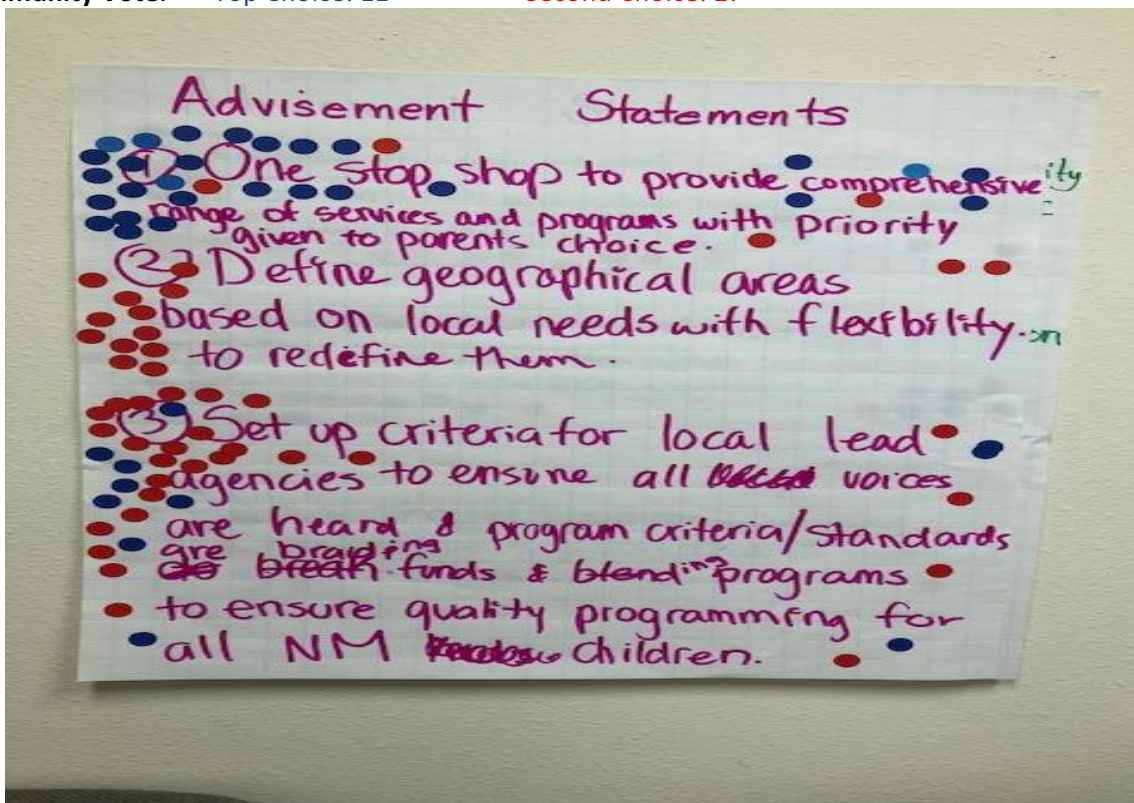 Advisement Statements
① One stop shop to provide comprehensive
range of services and programs with priority
given to parents choice.
② Define geographical areas
based on local needs with flexibility.
to redefine them.
③ Set up criteria for local lead
agencies to ensure all voices
are heard & program criteria/standards
are braiding
break funds & blending programs
to ensure quality programming for
all NM children.
ity